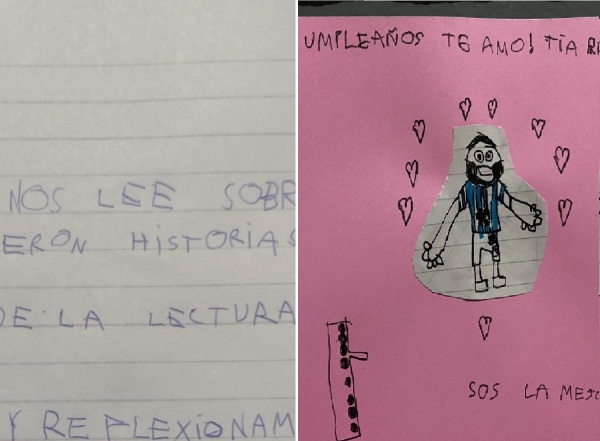 NOS LEE SOBR
ERON HISTORIAS
DE LA LECTURA
Y REFLEXIONAM
UMPLEAÑOS TE AMO! TÍA
SOS LA MEJO